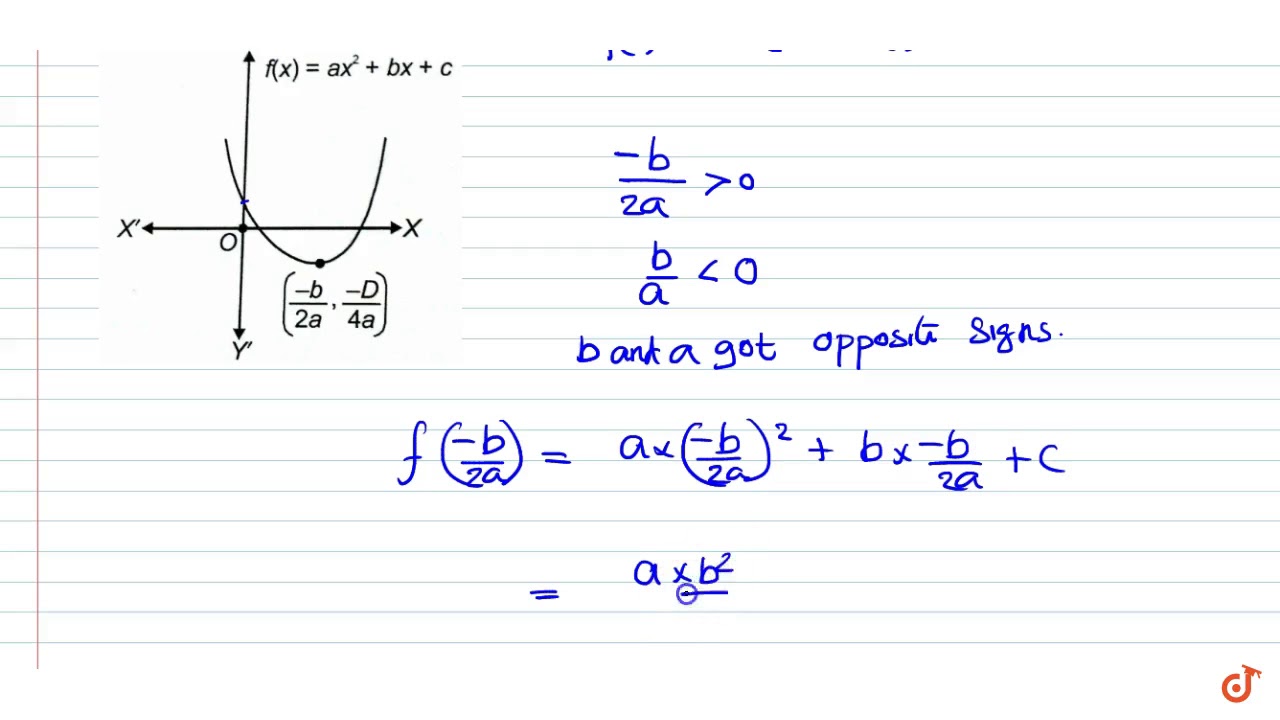 f(x) = ax² + bx + c
X'
O
X
(-b/2a, -D/4a)
Y'
-b/2a > 0
b/a < 0
b and a got opposite signs.
f(-b/2a) = a×(-b/2a)² + b×-b/2a + c
= a×b²